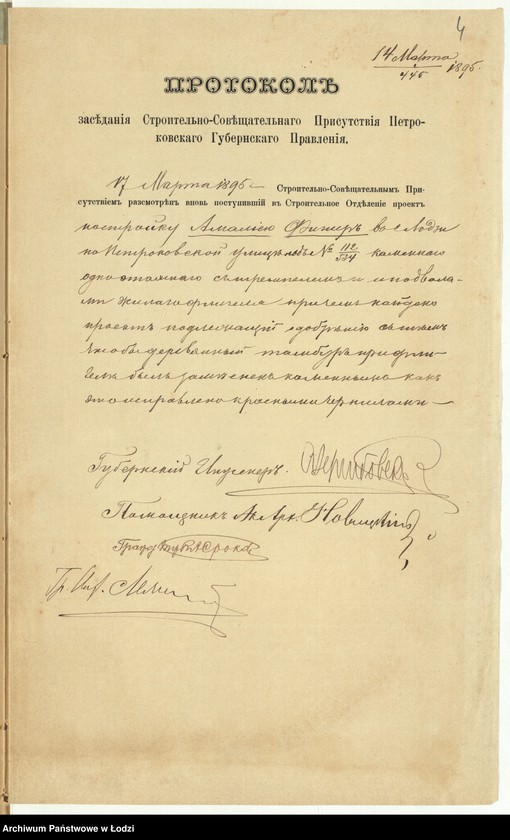 4
14 Марта 1895.
445
ПРОТОКОЛЪ
засѣданія Строительно-Совѣщательнаго Присутствія Петро-
ковскаго Губернскаго Правленія.
17 Марта 1895 Строительно-Совѣщательнымъ При-
сутствіемъ разсмотрѣнъ вновь поступившій въ Строительное Отдѣленіе проектъ
постройку Амаліею Фишеръ въ г. Лодзи
по Петроковской улицѣ подъ № 112/534 каменнаго
одноэтажнаго съ и подвала-
ми жилаго флигеля причемъ найдено
проектъ подлежащій одобренію съ тѣмъ
чтобы деревянный тамбуръ при фли-
гелѣ былъ замѣненъ каменнымъ какъ
это исправлено красными чернилами
Губернскій Инженеръ.
Помощникъ Новицкій
Гр. Инж.
Archiwum Państwowe w Łodzi